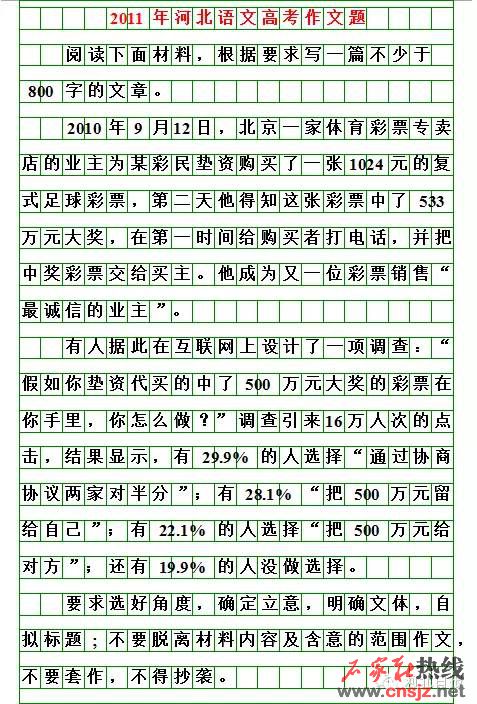 2011 年河北语文高考作文题
阅读下面材料，根据要求写一篇不少于
800 字的文章。
2010 年 9 月12 日，北京一家体育彩票专卖
店的业主为某彩民垫资购买了一张 1024 元的复
式足球彩票，第二天他得知这张彩票中了 533
万元大奖，在第一时间给购买者打电话，并把
中奖彩票交给买主。他成为又一位彩票销售“
最诚信的业主”。
有人据此在互联网上设计了一项调查：“
假如你垫资代买的中了 500 万元大奖的彩票在
你手里，你怎么做？”调查引来16万人次的点
击，结果显示，有 29.9% 的人选择“通过协商
协议两家对半分”；有 28.1% “把 500 万元留
给自己”；有 22.1% 的人选择“把 500 万元给
对方”；还有 19.9% 的人没做选择。
要求选好角度，确定立意，明确文体，自
拟标题；不要脱离材料内容及含意的范围作文，
不要套作，不得抄袭。
石家庄热线
www.cnsjz.net